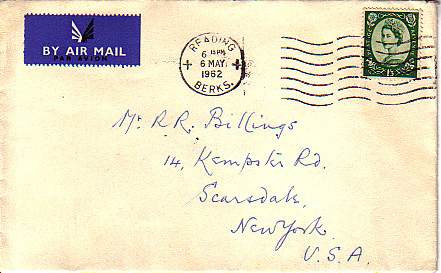 BY AIR MAIL
PAR AVION
READING
6 15PM
6 MAY
1962
BERKS.
Mr. R.R. Billings
14, Kempster Rd.
Scarsdale,
New York
U.S.A.